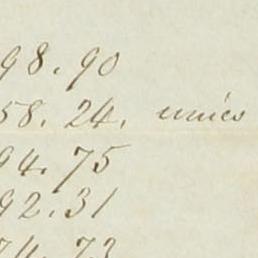 98.90
58.24.
94.75
92.31
74.73